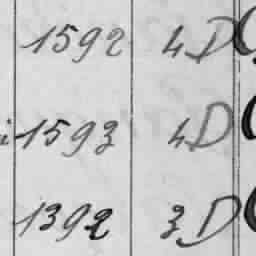 1592 4D
1593 4D
1392 3D